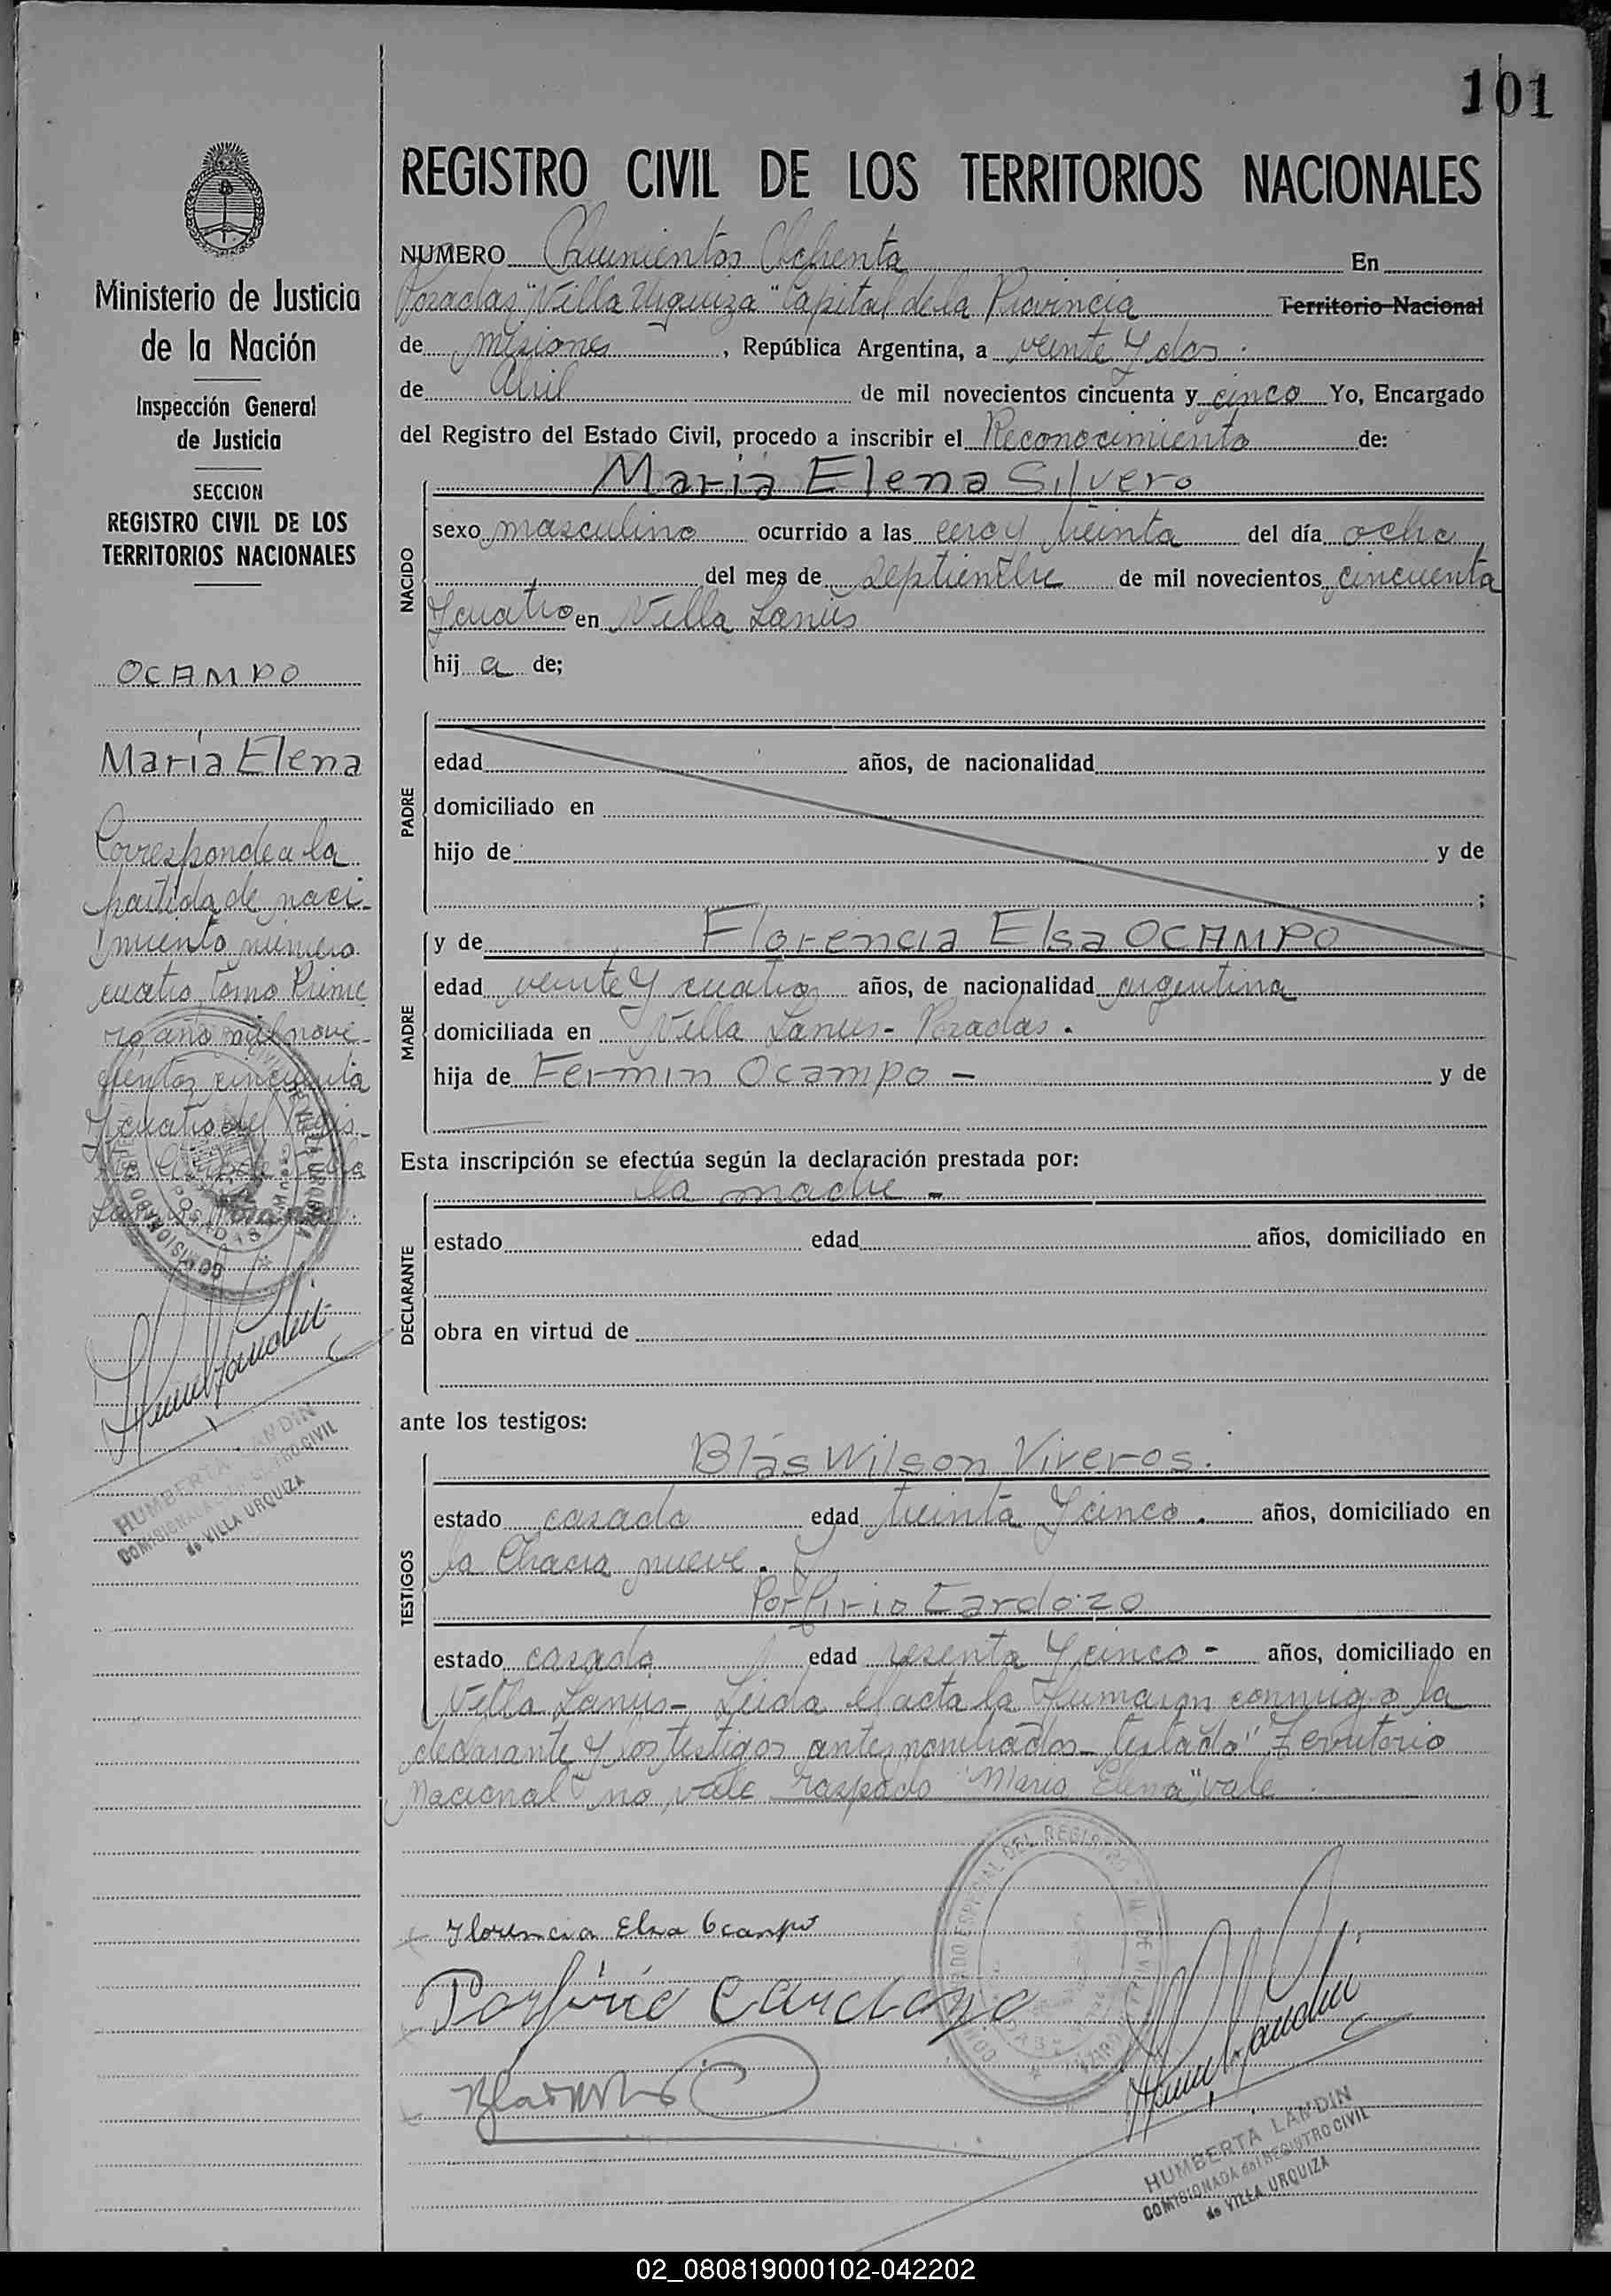 101
REGISTRO CIVIL DE LOS TERRITORIOS NACIONALES
Ministerio de Justicia
de la Nación
Inspección General
de Justicia
SECCION
REGISTRO CIVIL DE LOS
TERRITORIOS NACIONALES
OCAMPO
María Elena
Corresponde a la
partida de naci-
miento número
cuatro, Tomo Prime
ro año mil nove-
cientos cincuenta
y cuatro del Regis-
HUMBERTA LANDIN
COMISIONADA del REGISTRO CIVIL
de VILLA URQUIZA
NUMERO Ochenta En
Posadas "Villa Urquiza" Capital de la Provincia Territorio Nacional
de Misiones, República Argentina, a veinte y dos.
de Abril de mil novecientos cincuenta y cinco Yo, Encargado
del Registro del Estado Civil, procedo a inscribir el Reconocimiento de:
María Elena Silvero
NACIDO
sexo masculino ocurrido a las cero y treinta del día ocho
del mes de Septiembre de mil novecientos cincuenta
y cuatro en Villa Lanús
hij a de;
PADRE
edad años, de nacionalidad
domiciliado en
hijo de y de
;
MADRE
y de Florencia Elsa OCAMPO
edad veinte y cuatro años, de nacionalidad argentina
domiciliada en Villa Lanus - Posadas.
hija de Fermin Ocampo - y de
Esta inscripción se efectúa según la declaración prestada por:
DECLARANTE
la madre -
estado edad años, domiciliado en
obra en virtud de
ante los testigos:
TESTIGOS
Blás Wilson Viveros.
estado casado edad treinta y cinco. años, domiciliado en
la Chacra nueve. y
Porfirio Cardozo
estado casado edad sesenta y cinco - años, domiciliado en
Villa Lanús - Leida el acta la firmaron conmigo la
declarante y los testigos antes nombrados - testado "Territorio
Nacional" no vale raspado "Maria Elena" vale.
Florencia Elsa Ocampo
Porfirio Cardozo
HUMBERTA LANDIN
COMISIONADA del REGISTRO CIVIL
de VILLA URQUIZA
02_080819000102-042202